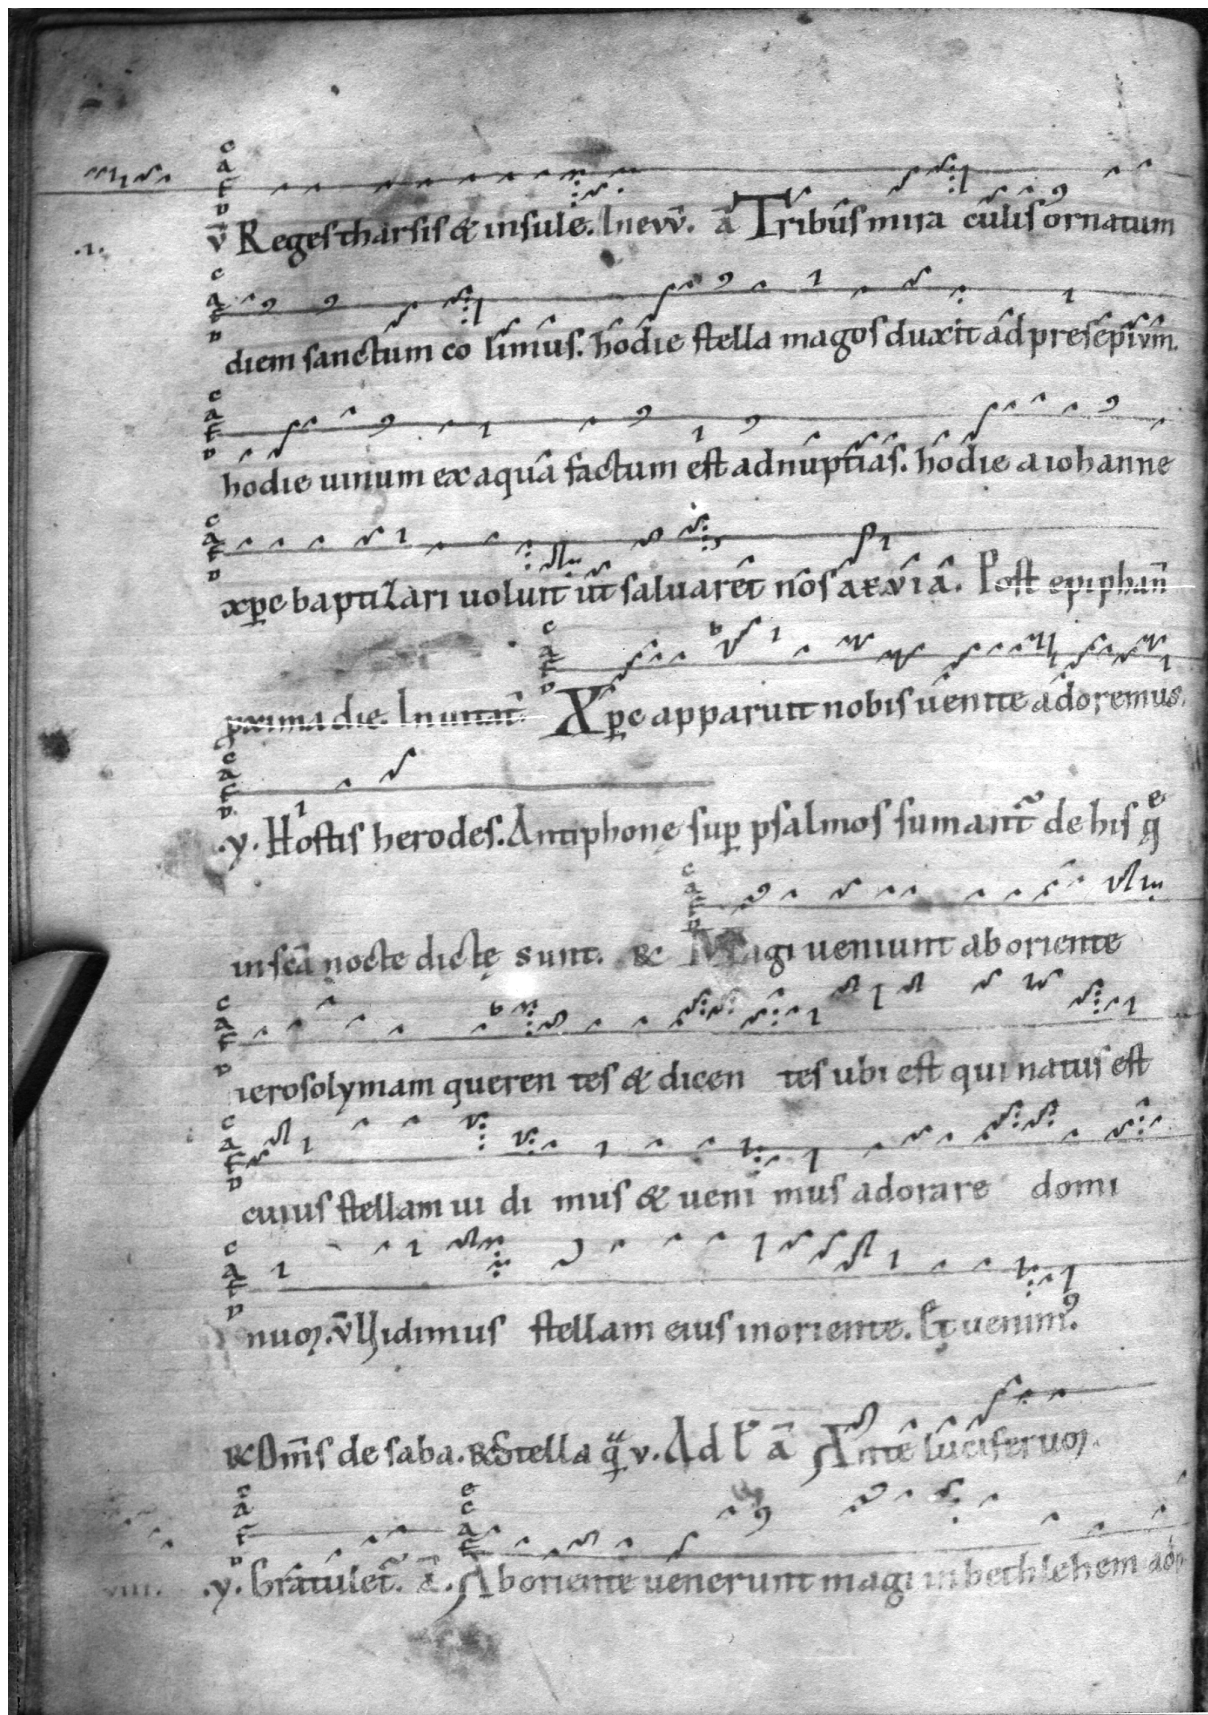 v̄ Reges tharsis & insulę. In evv̄. ā Tribus mira culis ornatum
diem sanctum co limus. hodie stella magos duxit ad presepium.
hodie uinum ex aqua factum est ad nuptias. hodie a iohanne
xp̄c baptizari uoluit ut saluaret nos aevia. Post epiphan̄
prima die. Inuitat̄. Xp̄c apparuit nobis uenite adoremus.
.y. Hostis herodes. Antiphonę sup̱ psalmos sumant̄ de his q̨
in sc̄a nocte dictę sunt. & Magi ueniunt ab oriente
ierosolymam queren tes & dicen tes ubi est qui natus est
cuius stellam ui di mus & ueni mus adorare domi
nuoꝝ. v̄ Uidimus stellam eius in oriente. Et uenim⁹.
& Om̄s de saba. & Stella q̄ v. Ad ł ā Ante luciferuoꝝ.
.y. Gratulet̄. ā. Ab oriente uenerunt magi in bethlehem ado